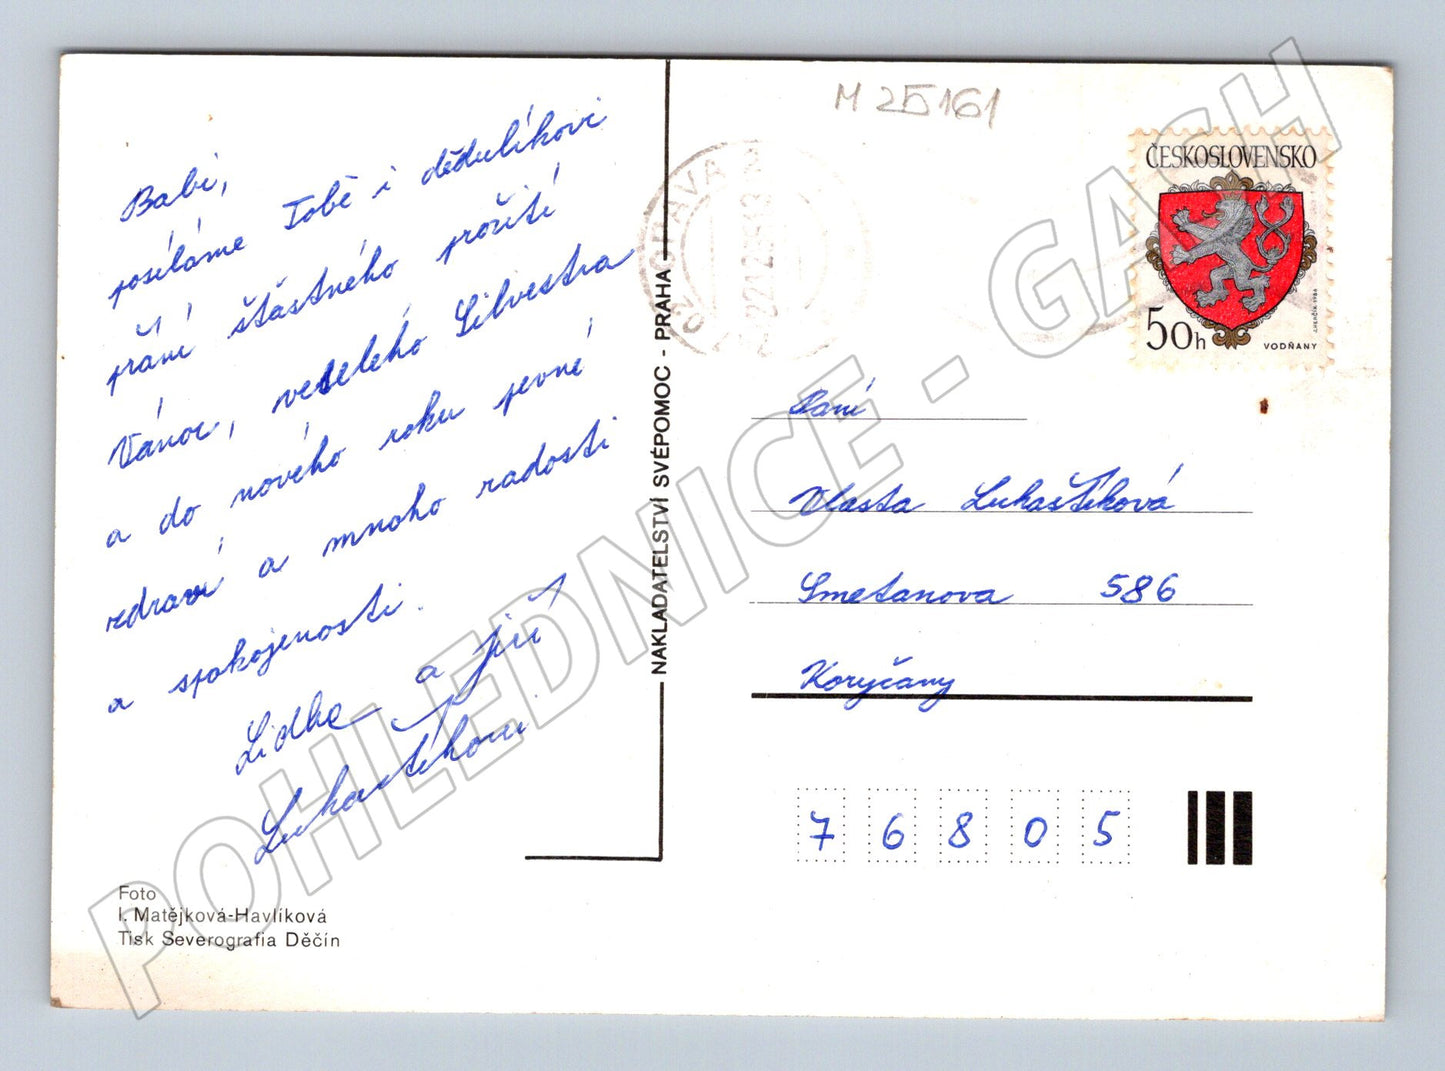 Babi,
posíláme Tobě i dědulíkovi
přání šťastného prožití
Vánoc, veselého Silvestra
a do nového roku pevné
zdraví a mnoho radosti
a spokojenosti.
Lidka a Jiří
Lukaštíkovi
Foto
I. Matějková-Havlíková
Tisk Severografia Děčín
NAKLADATELSTVÍ SVÉPOMOC - PRAHA
M 25161
OPAVA 2
22.12.
ČESKOSLOVENSKO
50h
VODŇANY
Paní
Vlasta Lukaštíková
Smetanova 586
Koryčany
76805
POHLEDNICE - GASH